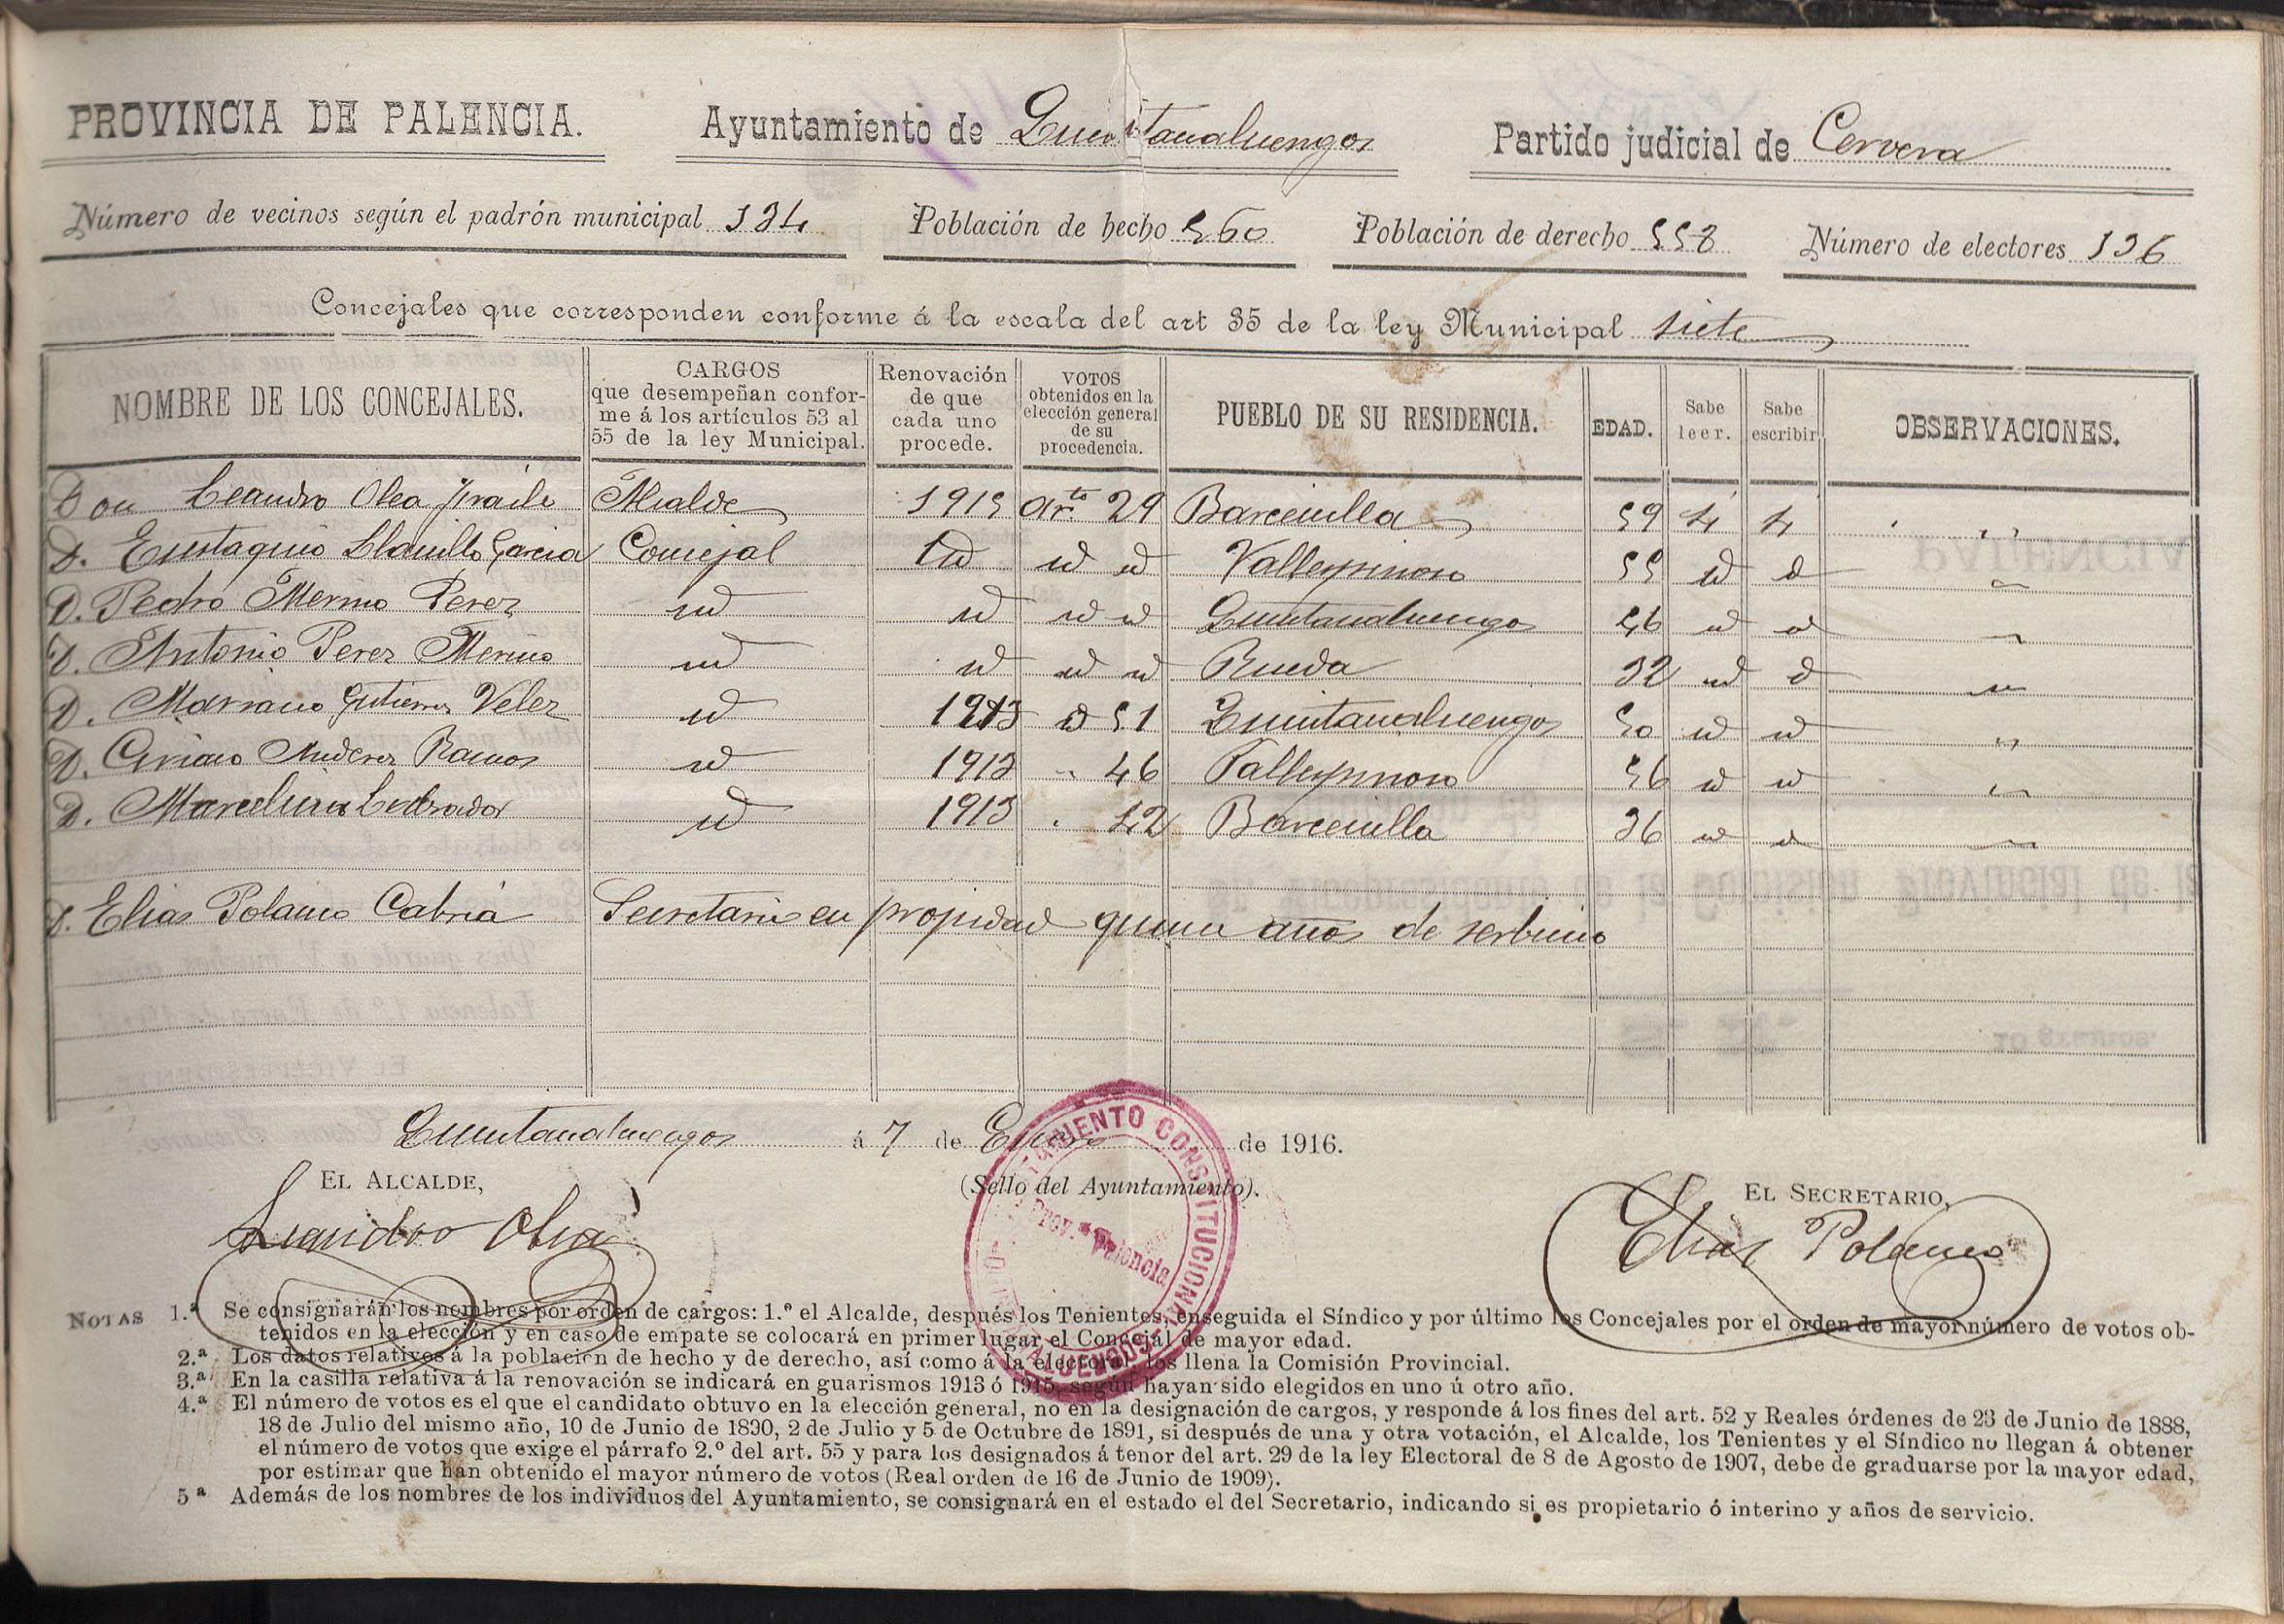 PROVINCIA DE PALENCIA. Ayuntamiento de Quintanaluengos Partido judicial de Cervera
Número de vecinos según el padrón municipal 134 Población de hecho 560 Población de derecho 558 Número de electores 136
Concejales que corresponden conforme á la escala del art 35 de la ley Municipal siete
NOMBRE DE LOS CONCEJALES. CARGOS que desempeñan confor- me á los artículos 53 al 55 de la ley Municipal. Renovación de que cada uno procede. VOTOS obtenidos en la elección general de su procedencia. PUEBLO DE SU RESIDENCIA. EDAD. Sabe leer. Sabe escribir OBSERVACIONES.
Don Leandro Olea Fraile Alcalde 1915 Arto 29 Barcenilla 59 Si Si "
D. Eustaquio Llanillo Garcia Concejal id id id Vallespinoso 55 id id "
D. Pedro Merino Perez id id id id Quintanaluengos 56 id id "
D. Antonio Perez Merino id id id id Rueda 32 id id "
D. Mariano Gutierrez Velez id 1913 id 51 Quintanaluengos 50 id id "
D. Ciriaco Ramos id 1913 " 46 Vallespinoso 56 id id "
D. Marcelino Labrador id 1913 " 42 Barcenilla 36 id id "
D. Elias Polanco Cabria Secretario en propidad quince años de serbicio
Quintanaluengos á 7 de Enero de 1916.
EL ALCALDE, (Sello del Ayuntamiento). EL SECRETARIO,
Leandro Olea Elias Polanco
AYUNTAMIENTO CONSTITUCIONAL
Prov.ª Palencia
NOTAS 1.ª Se consignarán los nombres por orden de cargos: 1.º el Alcalde, después los Tenientes, enseguida el Síndico y por último los Concejales por el orden de mayor número de votos ob-
tenidos en la elección y en caso de empate se colocará en primer lugar el Concejal de mayor edad.
2.ª Los datos relativos á la población de hecho y de derecho, así como á la electoral, los llena la Comisión Provincial.
3.ª En la casilla relativa á la renovación se indicará en guarismos 1913 ó 1915, según hayan sido elegidos en uno ú otro año.
4.ª El número de votos es el que el candidato obtuvo en la elección general, no en la designación de cargos, y responde á los fines del art. 52 y Reales órdenes de 23 de Junio de 1888,
18 de Julio del mismo año, 10 de Junio de 1890, 2 de Julio y 5 de Octubre de 1891, si después de una y otra votación, el Alcalde, los Tenientes y el Síndico no llegan á obtener
el número de votos que exige el párrafo 2.º del art. 55 y para los designados á tenor del art. 29 de la ley Electoral de 8 de Agosto de 1907, debe de graduarse por la mayor edad,
por estimar que han obtenido el mayor número de votos (Real orden de 16 de Junio de 1909).
5ª Además de los nombres de los individuos del Ayuntamiento, se consignará en el estado el del Secretario, indicando si es propietario ó interino y años de servicio.